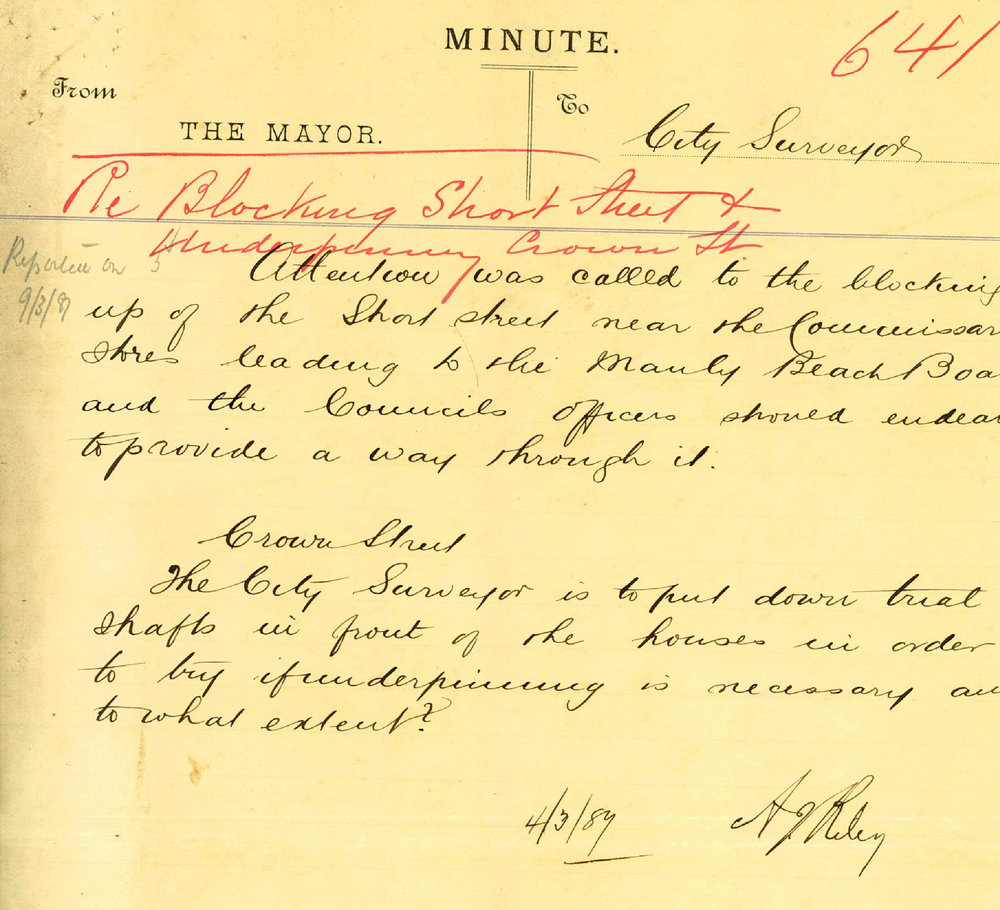 MINUTE.
641
From
To
THE MAYOR.
City Surveyor
Re Blocking Short Street &
Underpinning Crown St.
Reported on
9/3/87
Attention was called to the blocking
up of the Short street near the Commissar
stores leading to the Manly Beach Boa
and the Councils officers should endea
to provide a way through it.
Crown Street
The City Surveyor is to put down trial
shafts in front of the houses in order
to try if underpinning is necessary an
to what extent?
4/3/87
A J Riley